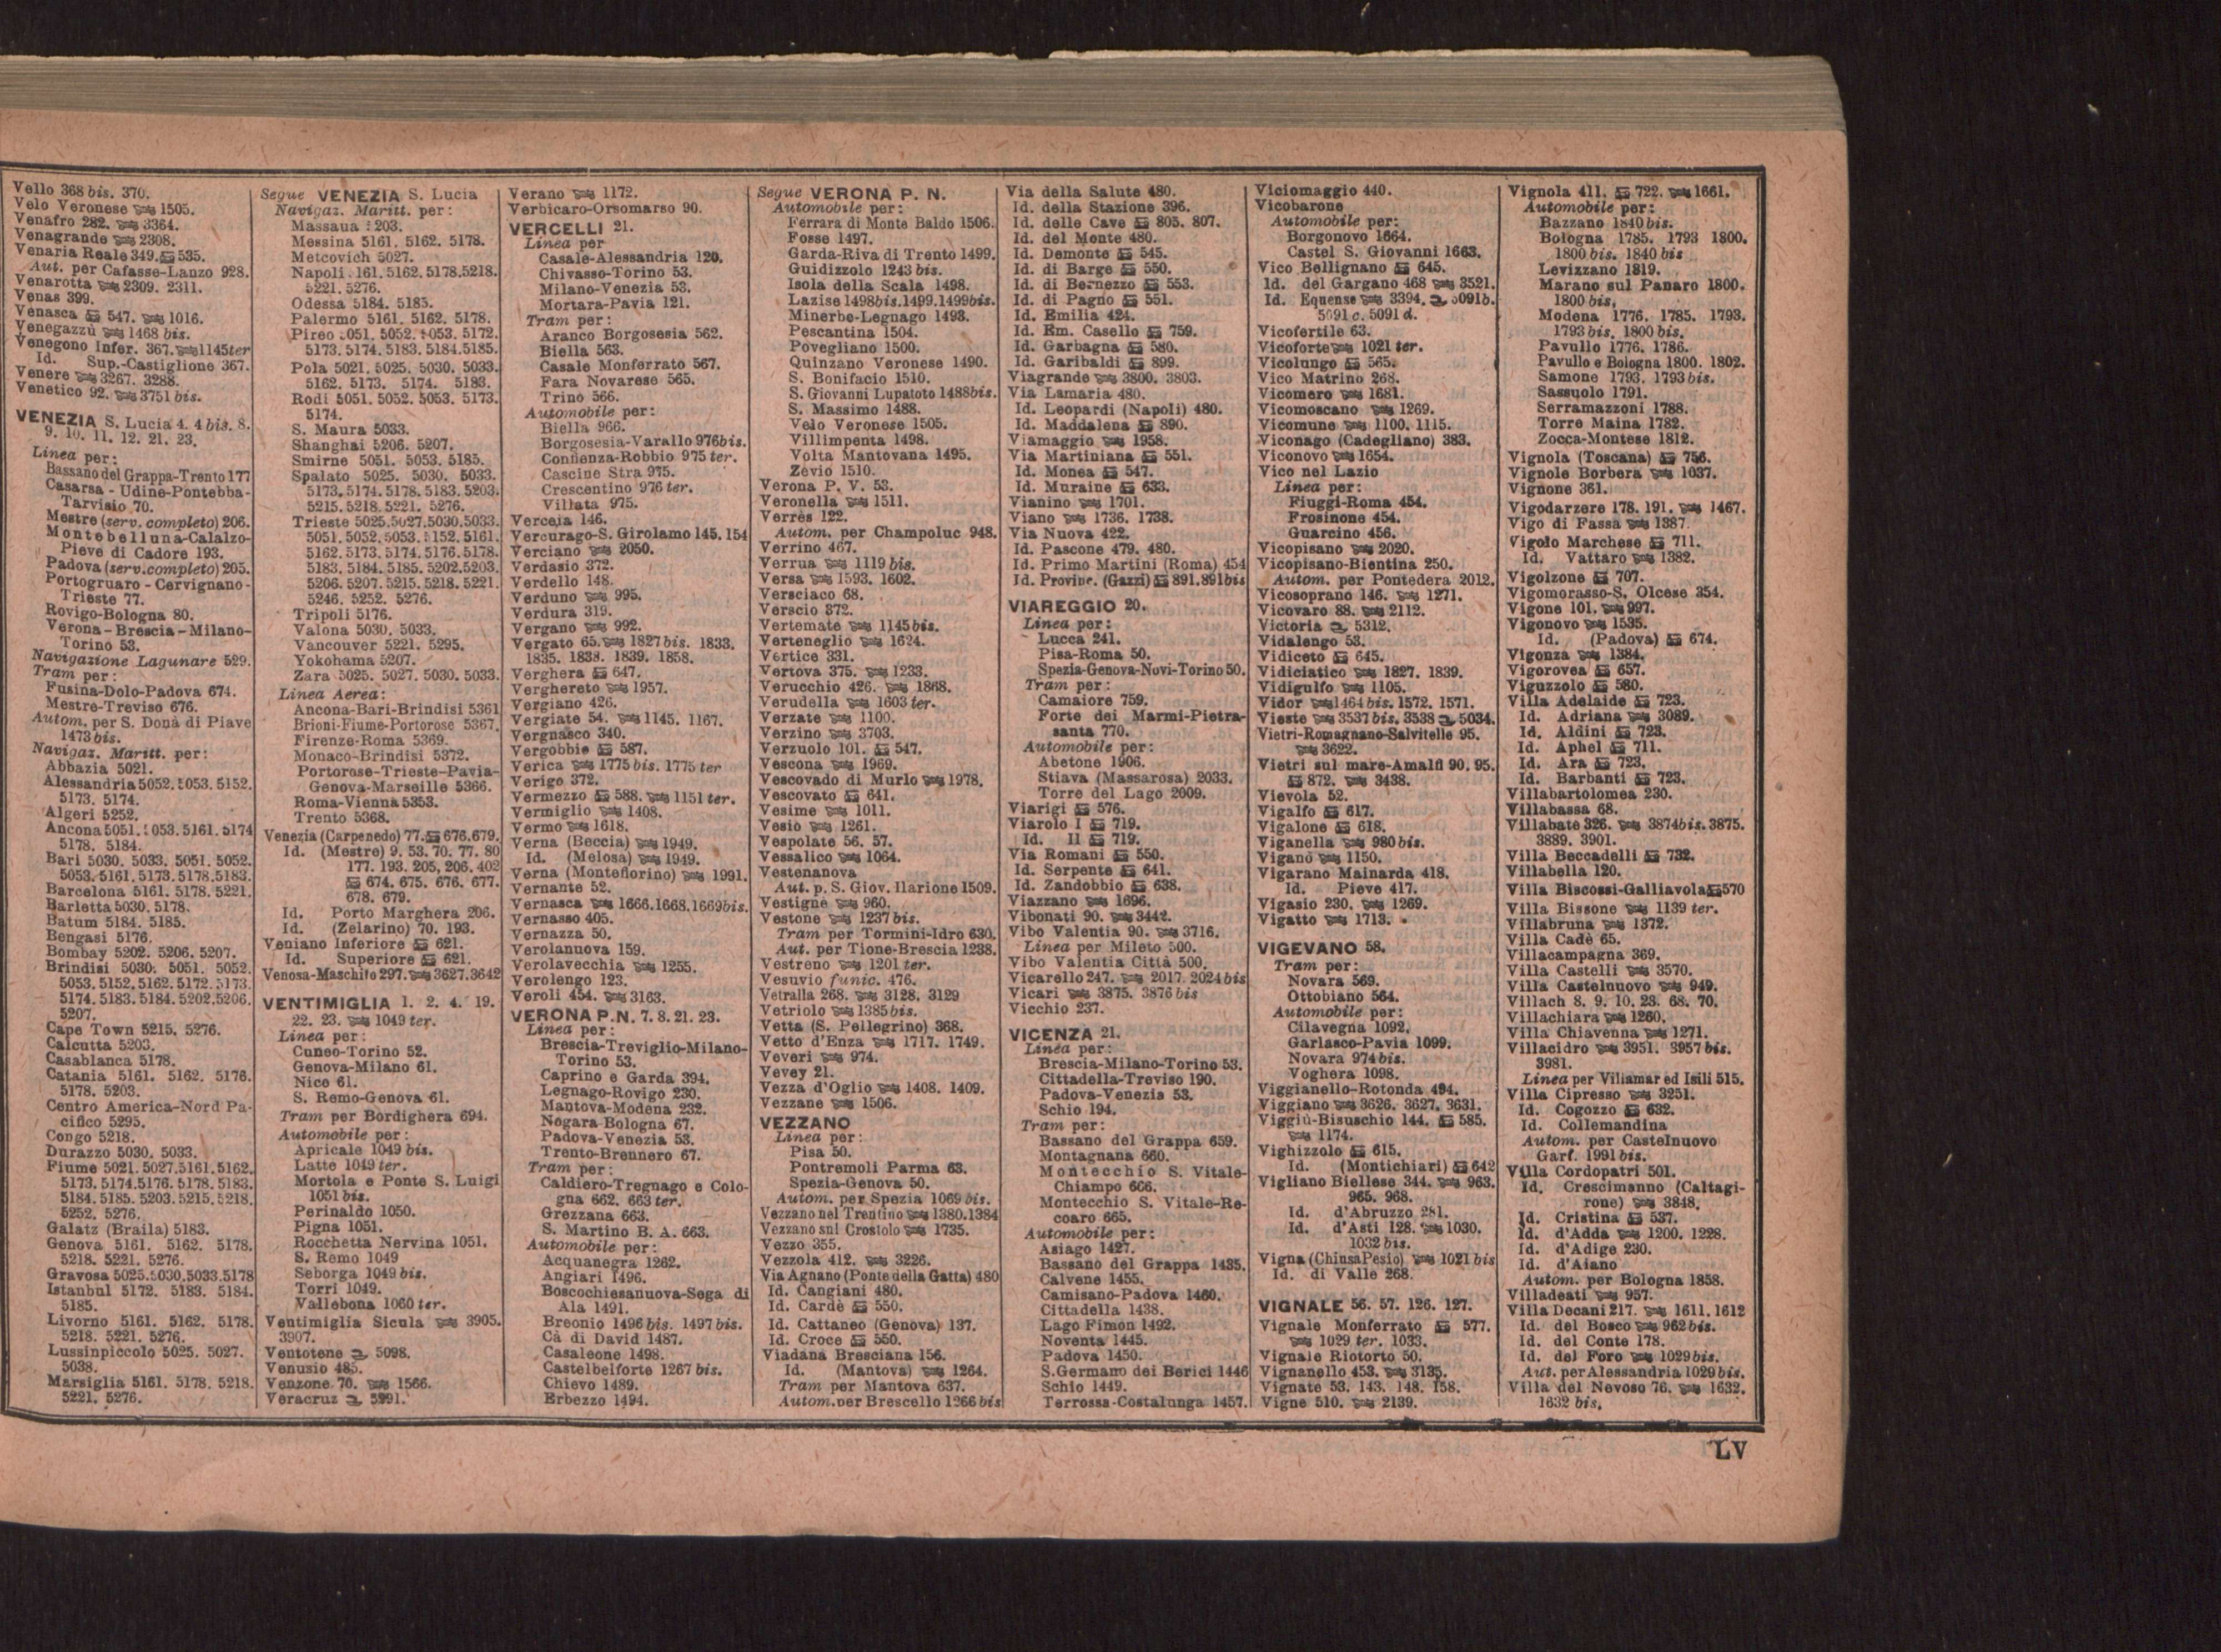 Vello 368 bis. 370.
Velo Veronese 1505.
Venafro 282. 3364.
Venagrande 2308.
Venaria Reale 349. 535.
Aut. per Cafasse-Lanzo 928.
Venarotta 2309. 2311.
Venas 399.
Venasca 547. 1016.
Venegazzù 1468 bis.
Venegono Infer. 367. 1145ter
Id. Sup.-Castiglione 367.
Venere 3267. 3288.
Venetico 92. 3751 bis.
VENEZIA S. Lucia 4. 4 bis. 8.
9. 10. 11. 12. 21. 23.
Linea per:
Bassano del Grappa-Trento 177
Casarsa - Udine-Pontebba-
Tarvisio 70.
Mestre (serv. completo) 206.
Montebelluna-Calalzo-
Pieve di Cadore 193.
Padova (serv. completo) 205.
Portogruaro - Cervignano -
Trieste 77.
Rovigo-Bologna 80.
Verona-Brescia-Milano-
Torino 53.
Navigazione Lagunare 529.
Tram per:
Fusina-Dolo-Padova 674.
Mestre-Treviso 676.
Autom. per S. Donà di Piave
1473 bis.
Navigaz. Maritt. per:
Abbazia 5021.
Alessandria 5052. 5053. 5152.
5173. 5174.
Algeri 5252.
Ancona 5051. 5053. 5161. 5174
5178. 5184.
Bari 5030. 5033. 5051. 5052.
5053. 5161. 5173. 5178. 5183.
Barcelona 5161. 5178. 5221.
Barletta 5030. 5178.
Batum 5184. 5185.
Bengasi 5176.
Bombay 5202. 5206. 5207.
Brindisi 5030. 5051. 5052.
5053. 5152. 5162. 5172. 5173.
5174. 5183. 5184. 5202. 5206.
5207.
Cape Town 5215. 5276.
Calcutta 5203.
Casablanca 5178.
Catania 5161. 5162. 5176.
5178. 5203.
Centro America-Nord Pa-
cifico 5295.
Congo 5218.
Durazzo 5030. 5033.
Fiume 5021. 5027. 5161. 5162.
5173. 5174. 5176. 5178. 5183.
5184. 5185. 5203. 5215. 5218.
5252. 5276.
Galatz (Braila) 5183.
Genova 5161. 5162. 5178.
5218. 5221. 5276.
Gravosa 5025. 5030. 5033. 5178
Istanbul 5172. 5183. 5184.
5185.
Livorno 5161. 5162. 5178.
5218. 5221. 5276.
Lussinpiccolo 5025. 5027.
5038.
Marsiglia 5161. 5178. 5218.
5221. 5276.
Segue VENEZIA S. Lucia
Navigaz. Maritt. per:
Massaua 5203.
Messina 5161. 5162. 5178.
Metcovich 5027.
Napoli 5161. 5162. 5178. 5218.
5221. 5276.
Odessa 5184. 5185.
Palermo 5161. 5162. 5178.
Pireo 5051. 5052. 5053. 5172.
5173. 5174. 5183. 5184. 5185.
Pola 5021. 5025. 5030. 5033.
5162. 5173. 5174. 5183.
Rodi 5051. 5052. 5053. 5173.
5174.
S. Maura 5033.
Shanghai 5206. 5207.
Smirne 5051. 5053. 5185.
Spalato 5025. 5030. 5033.
5173. 5174. 5178. 5183. 5203.
5215. 5218. 5221. 5276.
Trieste 5025. 5027. 5030. 5033.
5051. 5052. 5053. 5152. 5161.
5162. 5173. 5174. 5176. 5178.
5183. 5184. 5185. 5202. 5203.
5206. 5207. 5215. 5218. 5221.
5246. 5252. 5276.
Tripoli 5176.
Valona 5030. 5033.
Vancouver 5221. 5295.
Yokohama 5207.
Zara 5025. 5027. 5030. 5033.
Linea Aerea:
Ancona-Bari-Brindisi 5361
Brioni-Fiume-Portorose 5367.
Firenze-Roma 5369.
Monaco-Brindisi 5372.
Portorose-Trieste-Pavia-
Genova-Marseille 5366.
Roma-Vienna 5353.
Trento 5368.
Venezia (Carpenedo) 77. 676. 679.
Id. (Mestre) 9. 53. 70. 77. 80
177. 193. 205. 206. 402
674. 675. 676. 677.
678. 679.
Id. Porto Marghera 206.
Id. (Zelarino) 70. 193.
Veniano Inferiore 621.
Id. Superiore 621.
Venosa-Maschito 297. 3627. 3642
VENTIMIGLIA 1. 2. 4. 19.
22. 23. 1049 ter.
Linea per:
Cuneo-Torino 52.
Genova-Milano 61.
Nice 61.
S. Remo-Genova 61.
Tram per Bordighera 694.
Automobile per:
Apricale 1049 bis.
Latte 1049 ter.
Mortola e Ponte S. Luigi
1051 bis.
Perinaldo 1050.
Pigna 1051.
Rocchetta Nervina 1051.
S. Remo 1049
Seborga 1049 bis.
Torri 1049.
Vallebona 1060 ter.
Ventimiglia Sicula 3905.
3907.
Ventotene 5098.
Venusio 485.
Venzone 70. 1566.
Veracruz 5291.
Verano 1172.
Verbicaro-Orsomarso 90.
VERCELLI 21.
Linea per
Casale-Alessandria 120.
Chivasso-Torino 53.
Milano-Venezia 53.
Mortara-Pavia 121.
Tram per:
Aranco Borgosesia 562.
Biella 563.
Casale Monferrato 567.
Fara Novarese 565.
Trino 566.
Automobile per:
Biella 966.
Borgosesia-Varallo 976bis.
Confienza-Robbio 975 ter.
Cascine Stra 975.
Crescentino 976 ter.
Villata 975.
Verceia 146.
Vercurago-S. Girolamo 145. 154
Verciano 2050.
Verdasio 372.
Verdello 148.
Verduno 995.
Verdura 319.
Vergano 992.
Vergato 65. 1827 bis. 1833.
1835. 1838. 1839. 1858.
Verghera 647.
Verghereto 1957.
Vergiano 426.
Vergiate 54. 1145. 1167.
Vergnasco 340.
Vergobbio 587.
Verica 1775 bis. 1775 ter
Verigo 372.
Vermezzo 588. 1151 ter.
Vermiglio 1408.
Vermo 1618.
Verna (Beccia) 1949.
Id. (Melosa) 1949.
Verna (Montefiorino) 1991.
Vernante 52.
Vernasca 1666. 1668. 1669bis.
Vernasso 405.
Vernazza 50.
Verolanuova 159.
Verolavecchia 1255.
Verolengo 123.
Veroli 454. 3163.
VERONA P.N. 7. 8. 21. 23.
Linea per:
Brescia-Treviglio-Milano-
Torino 53.
Caprino e Garda 394.
Legnago-Rovigo 230.
Mantova-Modena 232.
Nogara-Bologna 67.
Padova-Venezia 53.
Trento-Brennero 67.
Tram per:
Caldiero-Tregnago e Colo-
gna 662. 663 ter.
Grezzana 663.
S. Martino B. A. 663.
Automobile per:
Acquanegra 1262.
Angiari 1496.
Boscochiesanuova-Sega di
Ala 1491.
Breonio 1496 bis. 1497 bis.
Cà di David 1487.
Casaleone 1498.
Castelbelforte 1267 bis.
Chievo 1489.
Erbezzo 1494.
Segue VERONA P. N.
Automobile per:
Ferrara di Monte Baldo 1506.
Fosse 1497.
Garda-Riva di Trento 1499.
Guidizzolo 1243 bis.
Isola della Scala 1498.
Lazise 1498bis. 1499. 1499bis.
Minerbe-Legnago 1493.
Pescantina 1504.
Povegliano 1500.
Quinzano Veronese 1490.
S. Bonifacio 1510.
S. Giovanni Lupatoto 1488bis.
S. Massimo 1488.
Velo Veronese 1505.
Villimpenta 1498.
Volta Mantovana 1495.
Zevio 1510.
Verona P. V. 53.
Veronella 1511.
Verrès 122.
Autom. per Champoluc 948.
Verrino 467.
Verrua 1119 bis.
Versa 1593. 1602.
Versciaco 68.
Verscio 372.
Vertemate 1145 bis.
Verteneglio 1624.
Vertice 331.
Vertova 375. 1233.
Verucchio 426. 1868.
Verudella 1603 ter.
Verzate 1100.
Verzino 3703.
Verzuolo 101. 547.
Vescona 1969.
Vescovado di Murlo 1978.
Vescovato 641.
Vesime 1011.
Vesio 1261.
Vespolate 56. 57.
Vessalico 1064.
Vestenanova
Aut. p. S. Giov. Ilarione 1509.
Vestignè 960.
Vestone 1237 bis.
Tram per Tormini-Idro 630.
Aut. per Tione-Brescia 1238.
Vestreno 1201 ter.
Vesuvio funic. 476.
Vetralla 268. 3128. 3129
Vetriolo 1385 bis.
Vetta (S. Pellegrino) 368.
Vetto d'Enza 1717. 1749.
Veveri 974.
Vevey 21.
Vezza d'Oglio 1408. 1409.
Vezzane 1506.
VEZZANO
Linea per:
Pisa 50.
Pontremoli Parma 63.
Spezia-Genova 50.
Autom. per Spezia 1069 bis.
Vezzano nel Trentino 1380. 1384
Vezzano sul Crostolo 1735.
Vezzo 355.
Vezzola 412. 3226.
Via Agnano (Ponte della Gatta) 480
Id. Cangiani 480.
Id. Cardè 550.
Id. Cattaneo (Genova) 137.
Id. Croce 550.
Viadana Bresciana 156.
Id. (Mantova) 1264.
Tram per Mantova 637.
Autom. per Brescello 1266 bis
Via della Salute 480.
Id. della Stazione 396.
Id. delle Cave 805. 807.
Id. del Monte 480.
Id. Demonte 545.
Id. di Barge 550.
Id. di Bernezzo 553.
Id. di Pagno 551.
Id. Emilia 424.
Id. Em. Casello 759.
Id. Garbagna 580.
Id. Garibaldi 899.
Viagrande 3800. 3803.
Via Lamaria 480.
Id. Leopardi (Napoli) 480.
Id. Maddalena 890.
Viamaggio 1958.
Via Martiniana 551.
Id. Monea 547.
Id. Muraine 633.
Vianino 1701.
Viano 1736. 1738.
Via Nuova 422.
Id. Pascone 479. 480.
Id. Primo Martini (Roma) 454
Id. Provinc. (Gazzi) 891. 891bis
VIAREGGIO 20.
Linea per:
Lucca 241.
Pisa-Roma 50.
Spezia-Genova-Novi-Torino 50.
Tram per:
Camaiore 759.
Forte dei Marmi-Pietra-
santa 770.
Automobile per:
Abetone 1906.
Stiava (Massarosa) 2033.
Torre del Lago 2009.
Viarigi 576.
Viarolo I 719.
Id. II 719.
Via Romani 550.
Id. Serpente 641.
Id. Zandobbio 638.
Viazzano 1696.
Vibonati 90. 3442.
Vibo Valentia 90. 3716.
Linea per Mileto 500.
Vibo Valentia Città 500.
Vicarello 247. 2017. 2024 bis
Vicari 3875. 3876 bis
Vicchio 237.
VICENZA 21.
Linea per:
Brescia-Milano-Torino 53.
Cittadella-Treviso 190.
Padova-Venezia 53.
Schio 194.
Tram per:
Bassano del Grappa 659.
Montagnana 660.
Montecchio S. Vitale-
Chiampo 666.
Montecchio S. Vitale-Re-
coaro 665.
Automobile per:
Asiago 1427.
Bassano del Grappa 1435.
Calvene 1455.
Camisano-Padova 1460.
Cittadella 1438.
Lago Fimon 1492.
Noventa 1445.
Padova 1450.
S. Germano dei Berici 1446
Schio 1449.
Terrossa-Costalunga 1457.
Viciomaggio 440.
Vicobarone
Automobile per:
Borgonovo 1664.
Castel S. Giovanni 1663.
Vico Bellignano 645.
Id. del Gargano 468 3521.
Id. Equense 3394. 5091b.
5091 c. 5091 d.
Vicofertile 63.
Vicoforte 1021 ter.
Vicolungo 565.
Vico Matrino 268.
Vicomero 1681.
Vicomoscano 1269.
Vicomune 1100. 1115.
Viconago (Cadegliano) 383.
Viconovo 1654.
Vico nel Lazio
Linea per:
Fiuggi-Roma 454.
Frosinone 454.
Guarcino 456.
Vicopisano 2020.
Vicopisano-Bientina 250.
Autom. per Pontedera 2012.
Vicosoprano 146. 1271.
Vicovaro 88. 2112.
Victoria 5312.
Vidalengo 53.
Vidiceto 645.
Vidiciatico 1827. 1839.
Vidigulfo 1105.
Vidor 1464 bis. 1572. 1571.
Vieste 3537 bis. 3538 5034.
Vietri-Romagnano-Salvitelle 95.
3622.
Vietri sul mare-Amalfi 90. 95.
872. 3438.
Vievola 52.
Vigalfo 617.
Vigalone 618.
Viganella 980 bis.
Viganò 1150.
Vigarano Mainarda 418.
Id. Pieve 417.
Vigasio 230. 1269.
Vigatto 1713.
VIGEVANO 58.
Tram per:
Novara 569.
Ottobiano 564.
Automobile per:
Cilavegna 1092.
Garlasco-Pavia 1099.
Novara 974 bis.
Voghera 1098.
Viggianello-Rotonda 494.
Viggiano 3626. 3627. 3631.
Viggiù-Bisuschio 144. 585.
1174.
Vighizzolo 615.
Id. (Montichiari) 642
Vigliano Biellese 344. 963.
965. 968.
Id. d'Abruzzo 281.
Id. d'Asti 128. 1030.
1032 bis.
Vigna (Chiusa Pesio) 1021 bis
Id. di Valle 268.
VIGNALE 56. 57. 126. 127.
Vignale Monferrato 577.
1029 ter. 1033.
Vignale Riotorto 50.
Vignanello 453. 3135.
Vignate 53. 143. 148. 158.
Vigne 510. 2139.
Vignola 411. 722. 1661.
Automobile per:
Bazzano 1840 bis.
Bologna 1785. 1793 1800.
1800 bis. 1840 bis
Levizzano 1819.
Marano sul Panaro 1800.
1800 bis.
Modena 1776. 1785. 1793.
1793 bis. 1800 bis.
Pavullo 1776. 1786.
Pavullo e Bologna 1800. 1802.
Samone 1793. 1793 bis.
Sassuolo 1791.
Serramazzoni 1788.
Torre Maina 1782.
Zocca-Montese 1812.
Vignola (Toscana) 756.
Vignole Borbera 1037.
Vignone 361.
Vigodarzere 178. 191. 1467.
Vigo di Fassa 1387.
Vigolo Marchese 711.
Id. Vattaro 1382.
Vigolzone 707.
Vigomorasso-S. Olcese 354.
Vigone 101. 997.
Vigonovo 1535.
Id. (Padova) 674.
Vigonza 1384.
Vigorovea 657.
Viguzzolo 580.
Villa Adelaide 723.
Id. Adriana 3089.
Id. Aldini 723.
Id. Aphel 711.
Id. Ara 723.
Id. Barbanti 723.
Villabartolomea 230.
Villabassa 68.
Villabate 326. 3874bis. 3875.
3889. 3901.
Villa Beccadelli 732.
Villabella 120.
Villa Biscossi-Galliavola 570
Villa Bissone 1139 ter.
Villabruna 1372.
Villa Cadè 65.
Villacampagna 369.
Villa Castelli 3570.
Villa Castelnuovo 949.
Villach 8. 9. 10. 23. 68. 70.
Villachiara 1260.
Villa Chiavenna 1271.
Villacidro 3951. 3957 bis.
3981.
Linea per Villamar ed Isili 515.
Villa Cipresso 3251.
Id. Cogozzo 632.
Id. Collemandina
Autom. per Castelnuovo
Garf. 1991 bis.
Villa Cordopatri 501.
Id. Crescimanno (Caltagi-
rone) 3848.
Id. Cristina 537.
Id. d'Adda 1200. 1228.
Id. d'Adige 230.
Id. d'Aiano
Autom. per Bologna 1858.
Villadeati 957.
Villa Decani 217. 1611. 1612
Id. del Bosco 962 bis.
Id. del Conte 178.
Id. del Foro 1029 bis.
Aut. per Alessandria 1029 bis.
Villa del Nevoso 76. 1632.
1632 bis.
LV